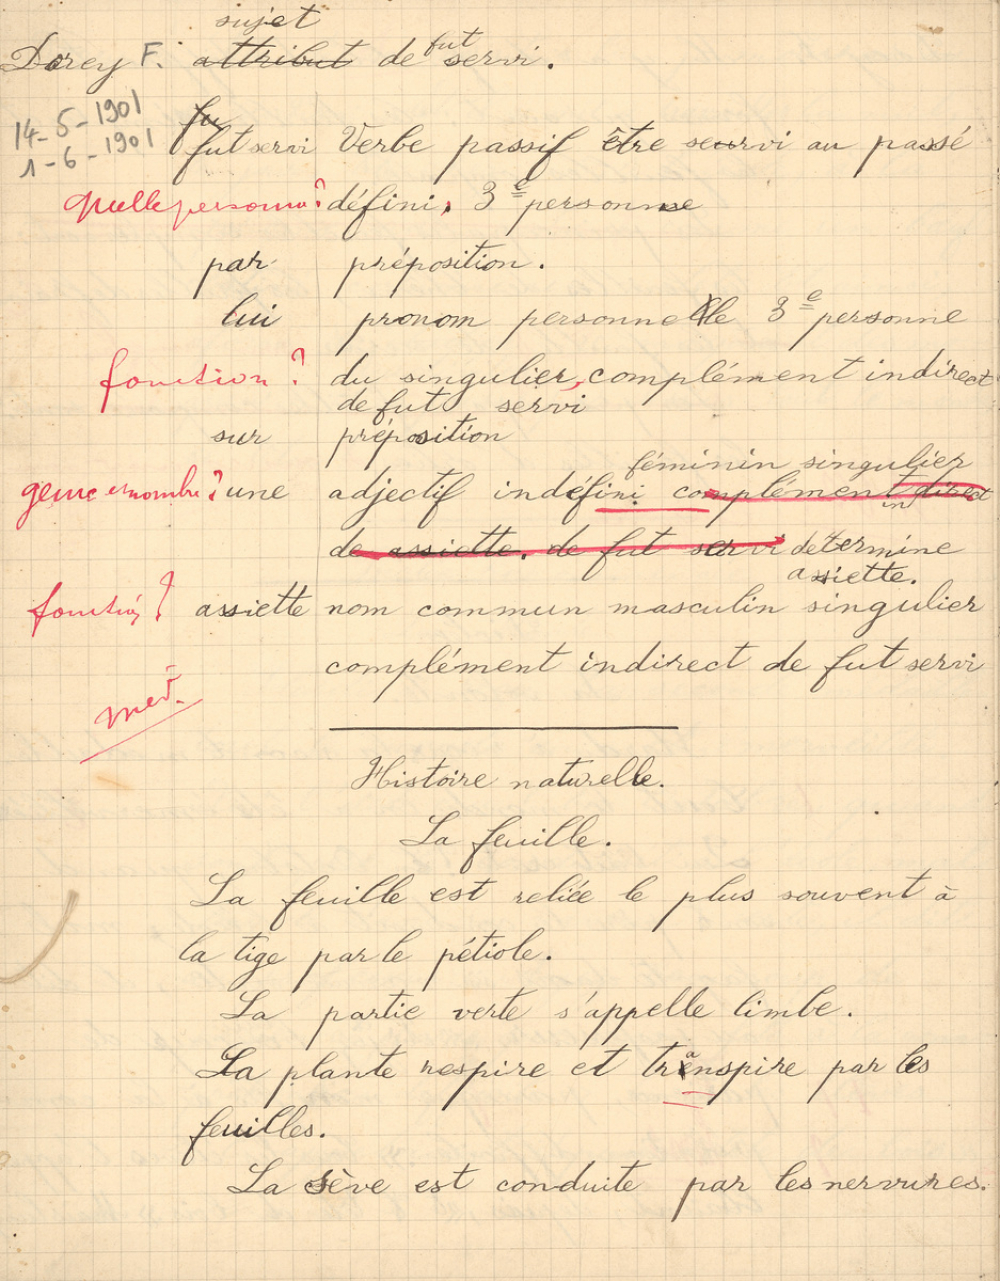 sujet
Dorey F. attribut de fut servi.
14-5-1901
1-6-1901
fu
fut servi Verbe passif être servi au passé
quelle personne? défini, 3e personne
par préposition.
lui pronom personnelle 3e personne
fonction? du singulier, complément indirect
de fut servi
sur préposition
féminin singulier
genre et nombre? une adjectif indéfini complément direct
in
de assiette. de fut servi détermine
assiette.
fonction? assiette nom commun masculin singulier
complément indirect de fut servi
Histoire naturelle.
La feuille.
La feuille est reliée le plus souvent à
la tige par le pétiole.
La partie verte s'appelle limbe.
La plante respire et transpire par les
feuilles.
La sève est conduite par les nervures.